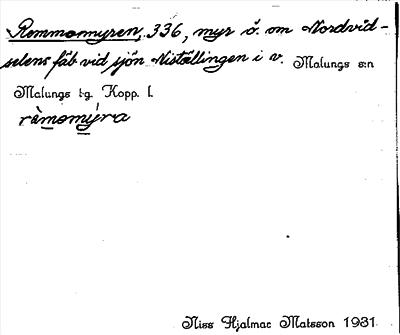 Rommomyren, 336, myr ö. om Nordvid-
selens fäb vid sjön Niställingen i v. Malungs s:n
Malungs t:g. Kopp. l.
ròmomýra
Niss Hjalmar Matsson 1931